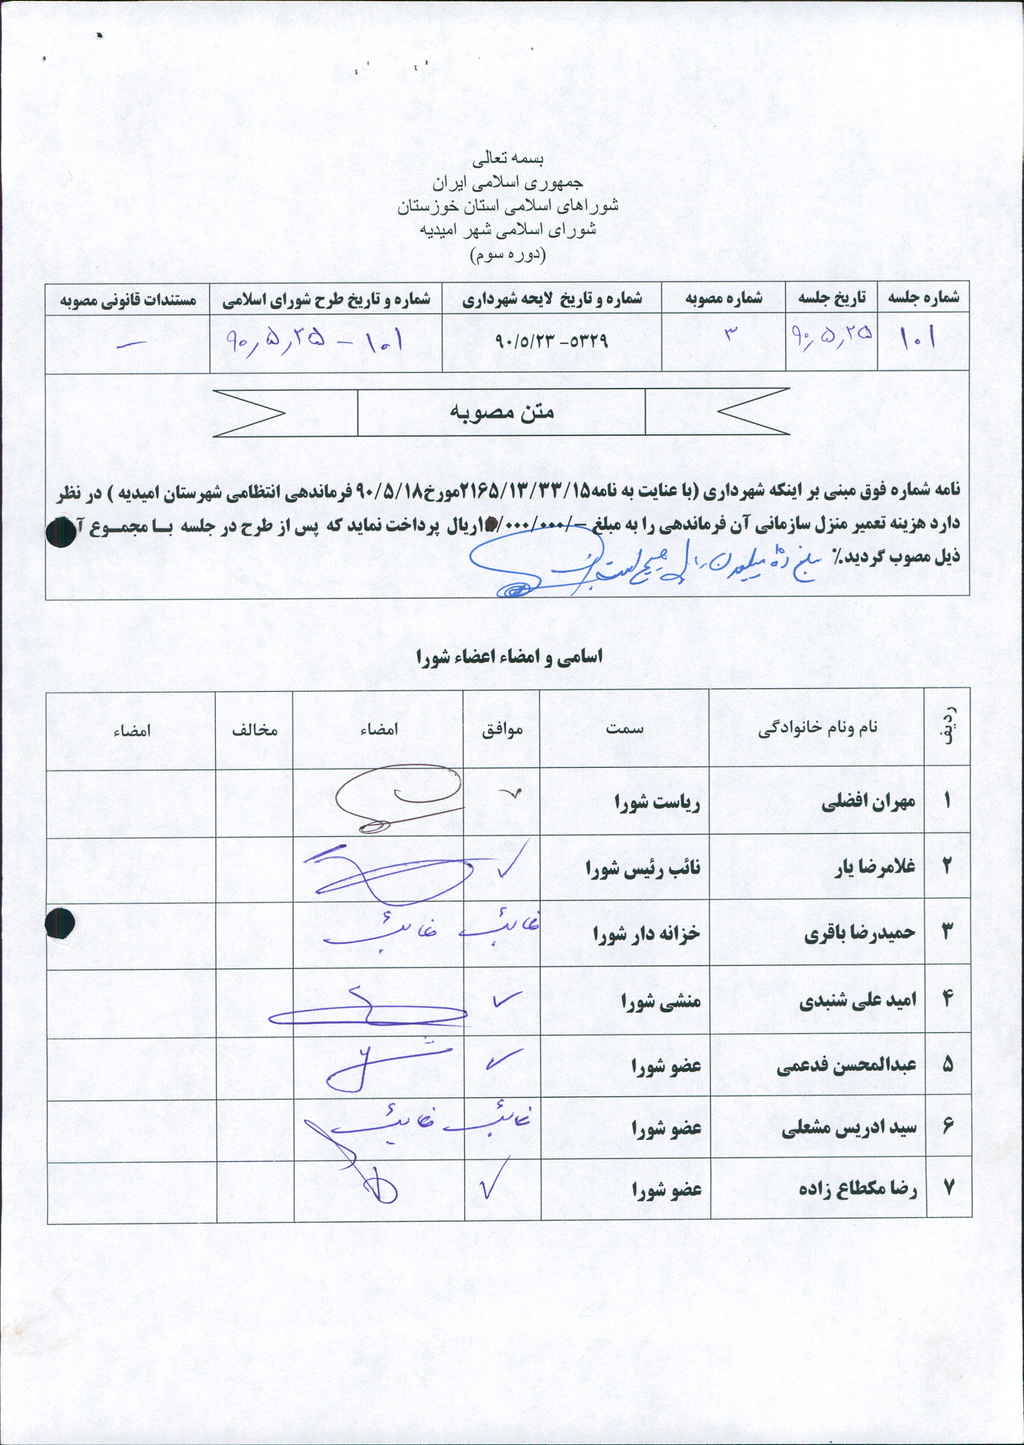 بسمه تعالی
جمهوری اسلامی ایران
شوراهای اسلامی استان خوزستان
شورای اسلامی شهر امیدیه
(دوره سوم)
شماره جلسه تاریخ جلسه شماره مصوبه شماره و تاریخ لایحه شهرداری شماره و تاریخ طرح شورای اسلامی مستندات قانونی مصوبه
۱۰۱ ۹۰٫۵٫۲۵ ۳ ۵۳۲۹- ۹۰/۵/۲۳ ۱۰۱ - ۹۰٫۵٫۲۵ —
متن مصوبه
نامه شماره فوق مبنی بر اینکه شهرداری (با عنایت به نامه۲۱۶۵/۱۳/۳۳/۱۵مورخ۹۰/۵/۱۸ فرماندهی انتظامی شهرستان امیدیه ) در نظر
دارد هزینه تعمیر منزل سازمانی آن فرماندهی را به مبلغ -/۱۰/۰۰۰/۰۰۰ریال پرداخت نماید که پس از طرح در جلسه با مجموع آ
ذیل مصوب گردید٪ مبلغ ده میلیون ریال صحیح است
اسامی و امضاء اعضاء شورا
ردیف نام ونام خانوادگی سمت موافق امضاء مخالف امضاء
۱ مهران افضلی ریاست شورا ✓
۲ غلامرضا یار نائب رئیس شورا ✓
۳ حمیدرضا باقری خزانه دار شورا غائب غائب
۴ امید علی شنبدی منشی شورا ✓
۵ عبدالمحسن فدعمی عضو شورا ✓
۶ سید ادریس مشعلی عضو شورا غائب غائب
۷ رضا مکطاع زاده عضو شورا ✓